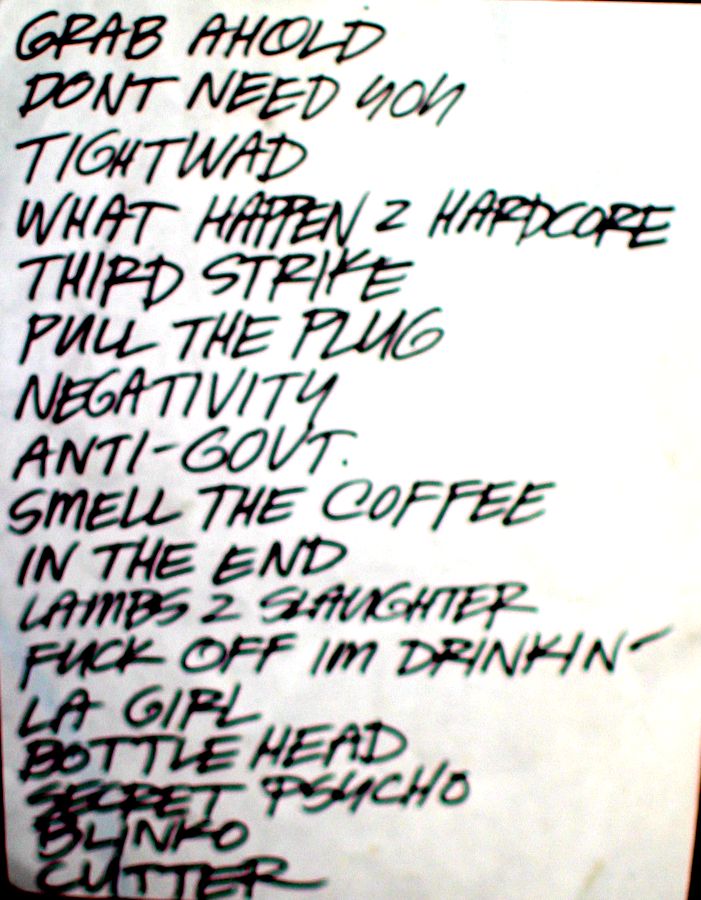 GRAB AHOLD
DONT NEED YOU
TIGHTWAD
WHAT HAPPEN 2 HARDCORE
THIRD STRIKE
PULL THE PLUG
NEGATIVITY
ANTI-GOVT.
SMELL THE COFFEE
IN THE END
LAMBS 2 SLAUGHTER
FUCK OFF IM DRINKIN'
LA GIRL
BOTTLE HEAD
SECRET PSYCHO
BLINKO
CUTTER